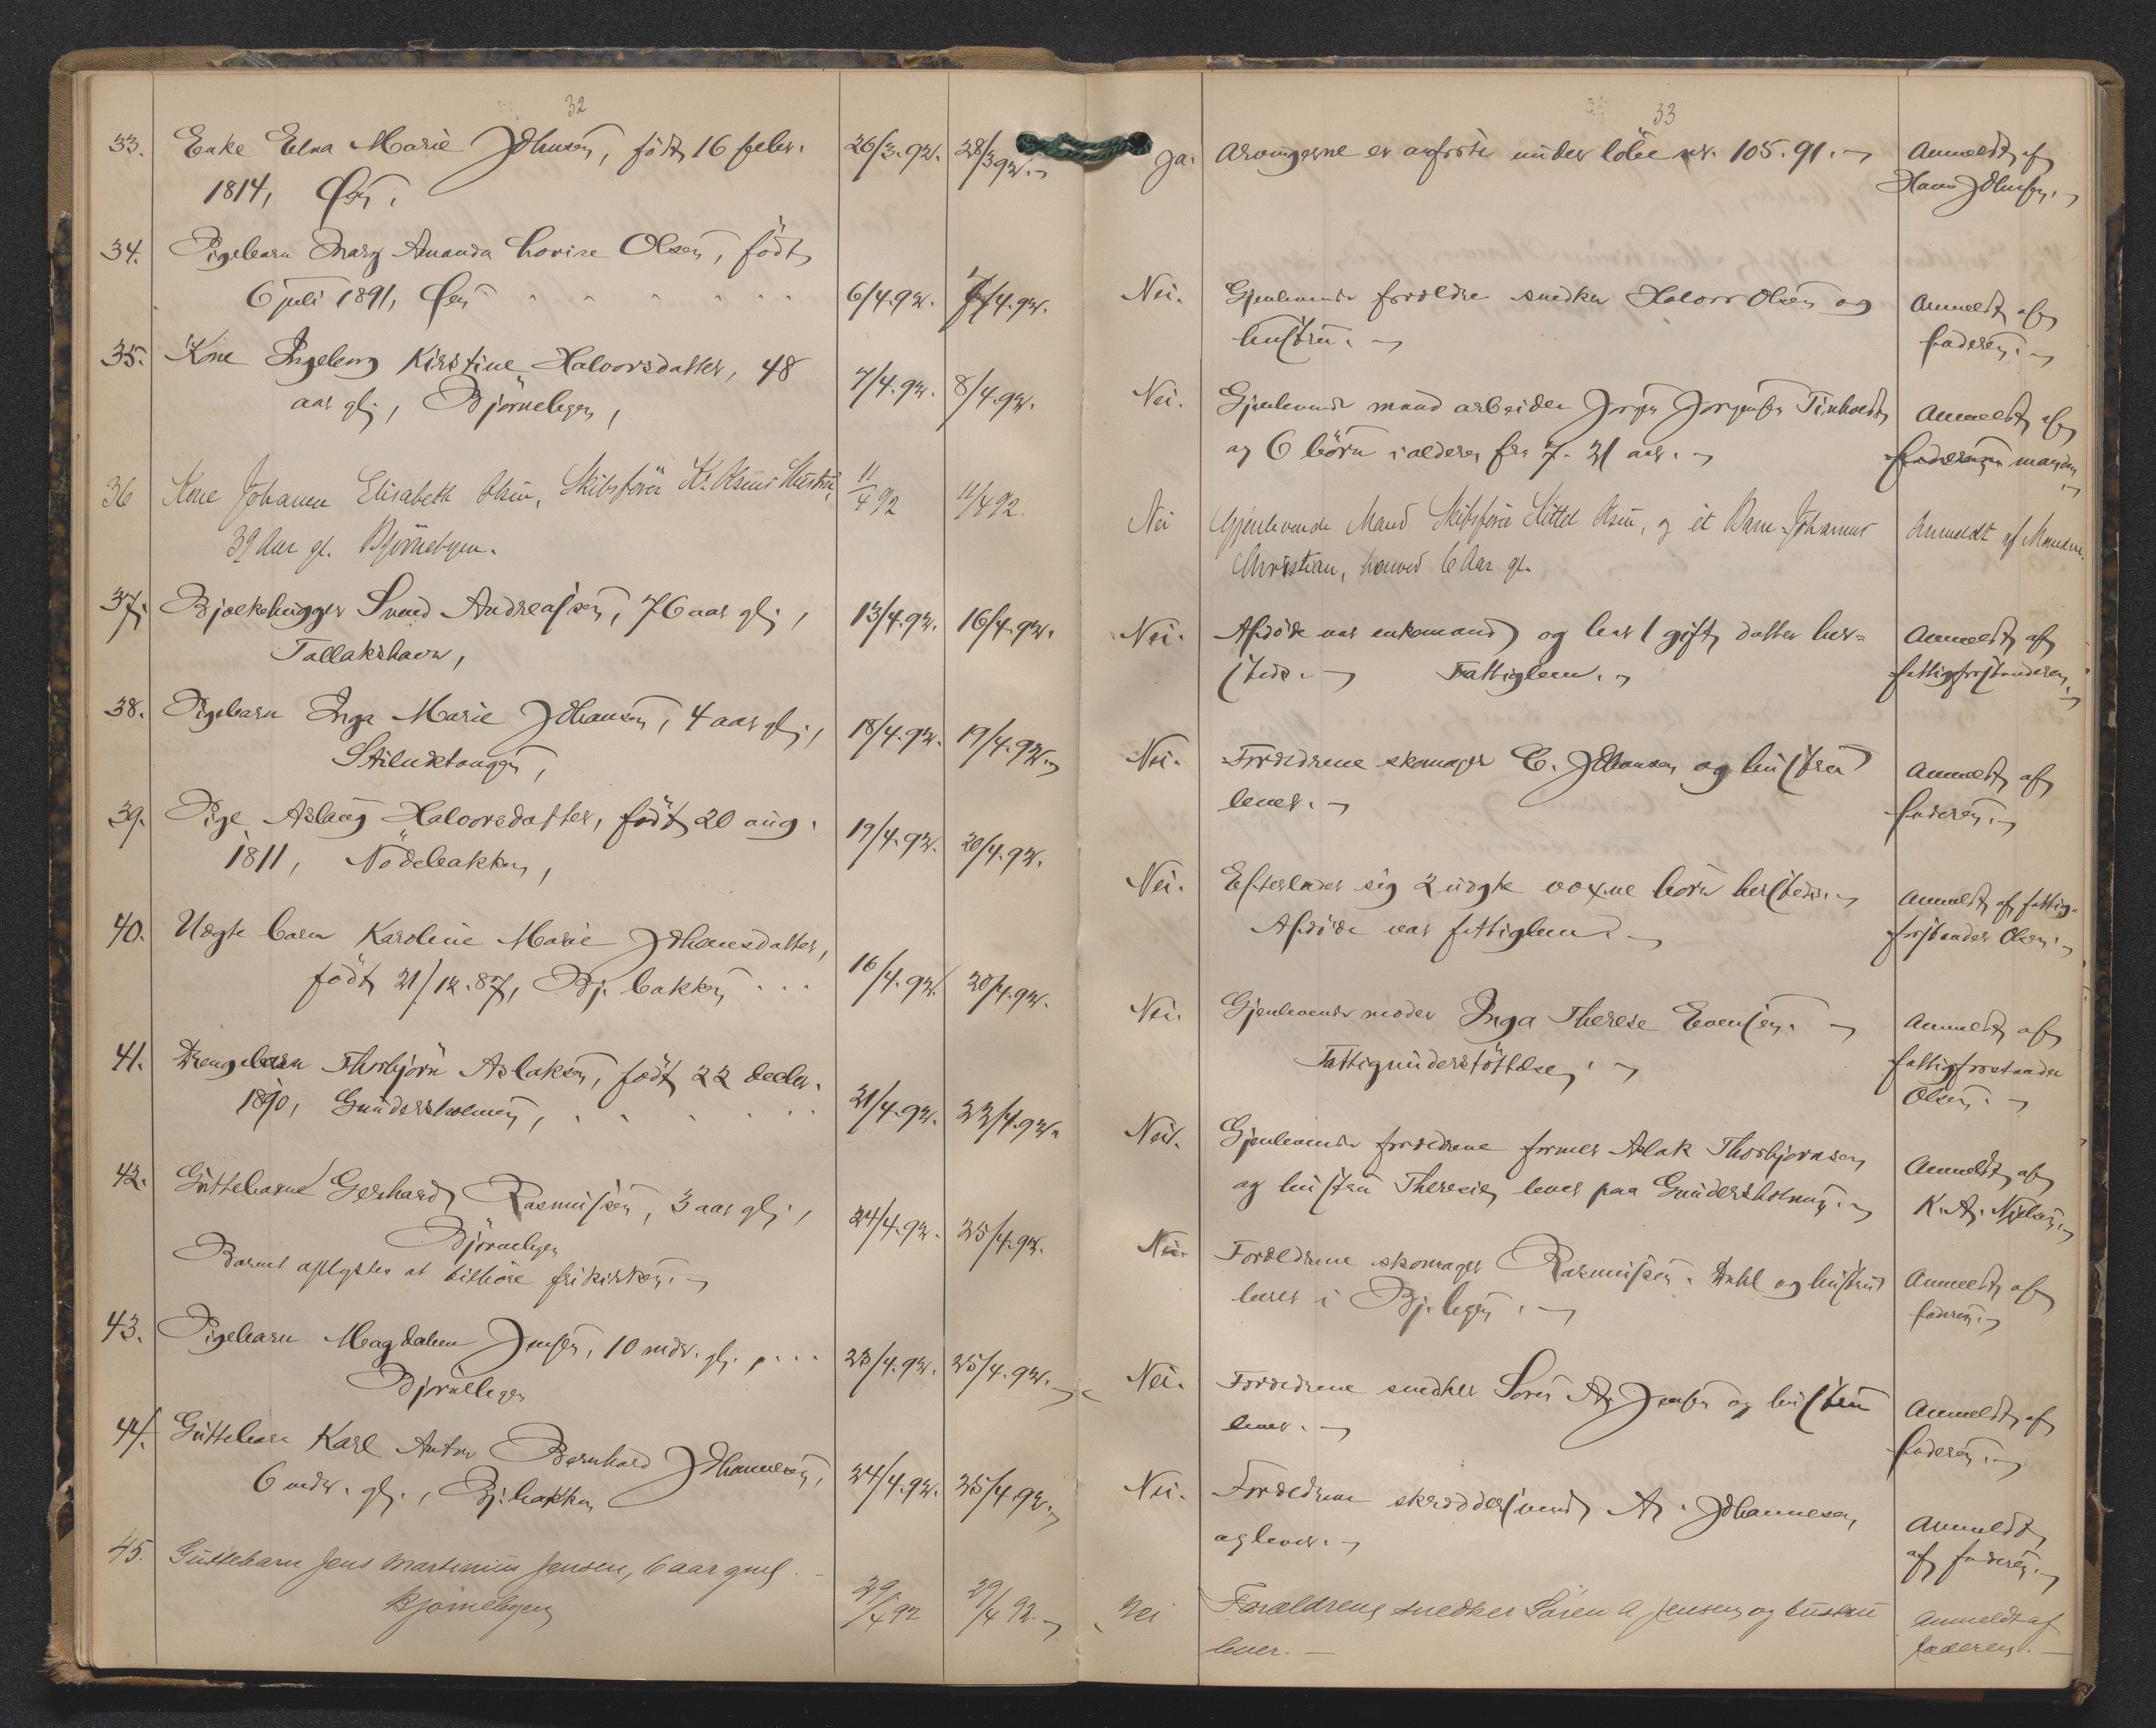 32
33. Enke Elna Marie Johnsen, födt 16 febr. 26/3.92. 28/3 92.
1814, Øen.
34. Pigebarn Mary Amanda Lovise Olsen, födt
6 juli 1891, Øen 6/4.92. 7/4.92.
35. Kone Ingeborg Kirstine Halvorsdatter, 48
aar gl., Björnebyen, 7/4.92. 8/4.92.
36 Kone Johanna Elisabeth Olsen, Skibsförer K. Olsens Hustru, 11/4 92 11/4 92.
39 Aar gl. Björnebyen.
37. Bjelkehugger Svend Andreassen, 76 aar gl., 13/4.92. 16/4.92.
Tallakshavn,
38. Pigebarn Inga Marie Johansen, 4 aar gl., 18/4.92. 19/4.92.
39. Pige Aslaug Halvorsdatter, født 20 aug. 19/4.92. 20/4.92.
1811, Nödebakken,
40. Uægte barn Karoline Marie Johansdatter,
födt 21/12.87, Bj. bakken 16/4.92. 20/4.92.
41. Drengebarn Thorbjörn Aslaksen, födt 22 decbr.
1890, Gundersholmen, 21/4.92. 22/4.92.
42. Guttebarnet Gerhard Rasmussen, 3 aar gl., 24/4.92. 25/4.92.
Björnebyen
Barnet oplystes at tilhöre frikirken.
43. Pigebarn Magdalena Jensen, 10 mdr. gl. 23/4.92. 25/4.92.
Björnebyen
44. Guttebarn Karl Anton Bernhard Johannesen,
6 mdr. gl., Bj. bakken 24/4.92. 25/4.92.
45. Guttebarn Jens Martinius Jensen, 6 aar gml.
Björnebyen 29/4 92 29/4 92.
33
Ja. Arvingerne er anförte under löbe nr. 105.91. Anmeldt af
Hans Johnsen.
Nei. Gjenlevende forældre snedker Halvor Olsen og Anmeldt af
hustru. faderen.
Nei. Gjenlevende mand arbeider Jörgen Jörgensen Anmeldt af
og 6 börn i alderen fra 7-21 aar. faderen manden
Nei Gjenlevende Mand Skibsförer Kittel Olsen, og et Barn Johannes Anmeldt af Manden.
Christian, henved 6 Aar gl.
Nei. Afdöde var enkemand og har 1 gift datter her- Anmeldt af
steds. Fattiglem. fattigforstanderen.
Nei. Forældrene skomager C. Johansen og hustru Anmeldt af
lever. faderen.
Nei. Efterlader sig 2 uægte voxne börn hersteds. Anmeldt af fattig-
Afdöde var fattiglem. forstander Olsen.
Nei. Gjenlevende moder Inga Therese Evensen. Anmeldt af
Fattigunderstöttelse. fattigforstander
Olsen.
Nei. Gjenlevende forældrene former Aslak Thorbjornsen Anmeldt af
og hustru Theresie, lever paa Gundersholmen. K. A. Nielsen.
Nei. Forældrene skomager Rasmussen Dahl og hustru Anmeldt af
lever i Bj. byen. faderen.
Nei. Forældrene snedker Sören A. Jensen og hustru Anmeldt af
lever. faderen.
Nei. Forældrene skræddersvend A. Johannesen Anmeldt
og lever. af faderen.
Nei Forældrene snedker Sören A Jensen og hustru Anmeldt af
lever. faderen.